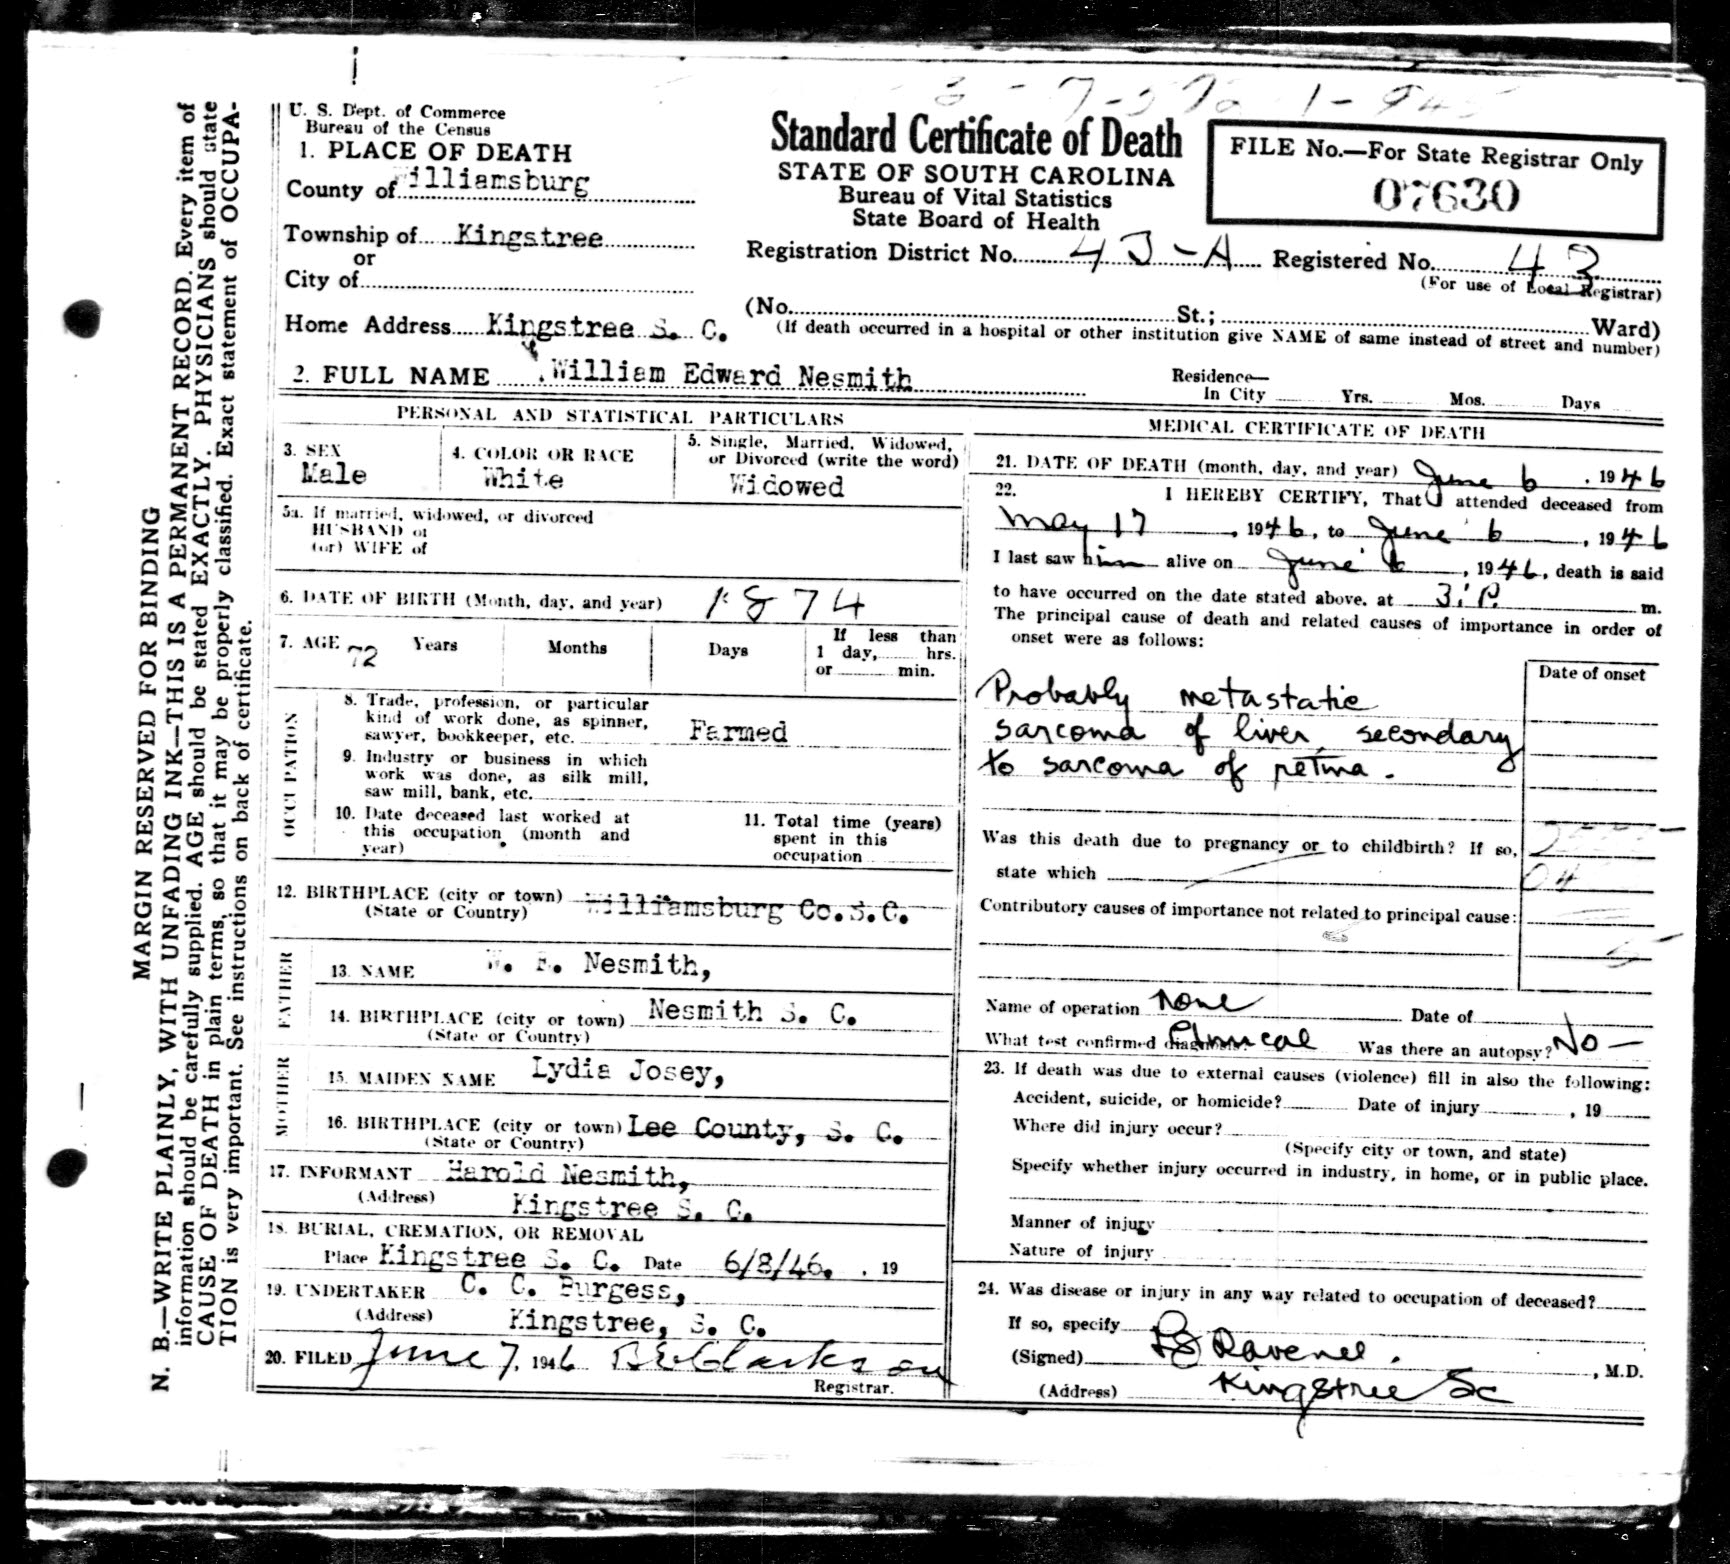 U. S. Dept. of Commerce
Bureau of the Census
1. PLACE OF DEATH
County of Williamsburg
Township of Kingstree
or
City of
Home Address Kingstree S. C.
Standard Certificate of Death
STATE OF SOUTH CAROLINA
Bureau of Vital Statistics
State Board of Health
FILE No.—For State Registrar Only
07630
Registration District No. 43-A Registered No. 43
(For use of Local Registrar)
(No. St.; Ward)
(If death occurred in a hospital or other institution give NAME of same instead of street and number)
2. FULL NAME William Edward Nesmith
Residence—
In City Yrs. Mos. Days
PERSONAL AND STATISTICAL PARTICULARS
3. SEX
Male
4. COLOR OR RACE
White
5. Single, Married, Widowed,
or Divorced (write the word)
Widowed
5a. If married, widowed, or divorced
HUSBAND of
(or) WIFE of
6. DATE OF BIRTH (Month, day, and year) 1874
7. AGE 72 Years Months Days
If less than
1 day, hrs.
or min.
OCCUPATION
8. Trade, profession, or particular
kind of work done, as spinner,
sawyer, bookkeeper, etc. Farmed
9. Industry or business in which
work was done, as silk mill,
saw mill, bank, etc.
10. Date deceased last worked at
this occupation (month and
year)
11. Total time (years)
spent in this
occupation
12. BIRTHPLACE (city or town) Williamsburg Co. S. C.
(State or Country)
FATHER
13. NAME W. E. Nesmith,
14. BIRTHPLACE (city or town) Nesmith S. C.
(State or Country)
MOTHER
15. MAIDEN NAME Lydia Josey,
16. BIRTHPLACE (city or town) Lee County, S. C.
(State or Country)
17. INFORMANT Harold Nesmith,
(Address) Kingstree S. C.
18. BURIAL, CREMATION, OR REMOVAL
Place Kingstree S. C. Date 6/8/46. , 19
19. UNDERTAKER C. C. Burgess,
(Address) Kingstree, S. C.
20. FILED June 7, 1946 Clarkson
Registrar.
MEDICAL CERTIFICATE OF DEATH
21. DATE OF DEATH (month, day, and year) June 6, 1946
22. I HEREBY CERTIFY, That I attended deceased from
May 17, 1946, to June 6, 1946
I last saw him alive on June 6, 1946, death is said
to have occurred on the date stated above, at 3:P. m.
The principal cause of death and related causes of importance in order of
onset were as follows:
Date of onset
Probably metastatic
sarcoma of liver secondary
to sarcoma of retina.
Was this death due to pregnancy or to childbirth? If so,
state which
Contributory causes of importance not related to principal cause:
Name of operation none Date of
What test confirmed diagnosis? Clinical Was there an autopsy? No—
23. If death was due to external causes (violence) fill in also the following:
Accident, suicide, or homicide? Date of injury , 19
Where did injury occur?
(Specify city or town, and state)
Specify whether injury occurred in industry, in home, or in public place.
Manner of injury
Nature of injury
24. Was disease or injury in any way related to occupation of deceased?
If so, specify
(Signed) Ravenel, M.D.
(Address) Kingstree SC
MARGIN RESERVED FOR BINDING
N. B.—WRITE PLAINLY, WITH UNFADING INK—THIS IS A PERMANENT RECORD. Every item of
information should be carefully supplied. AGE should be stated EXACTLY. PHYSICIANS should state
CAUSE OF DEATH in plain terms, so that it may be properly classified. Exact statement of OCCUPA-
TION is very important. See instructions on back of certificate.